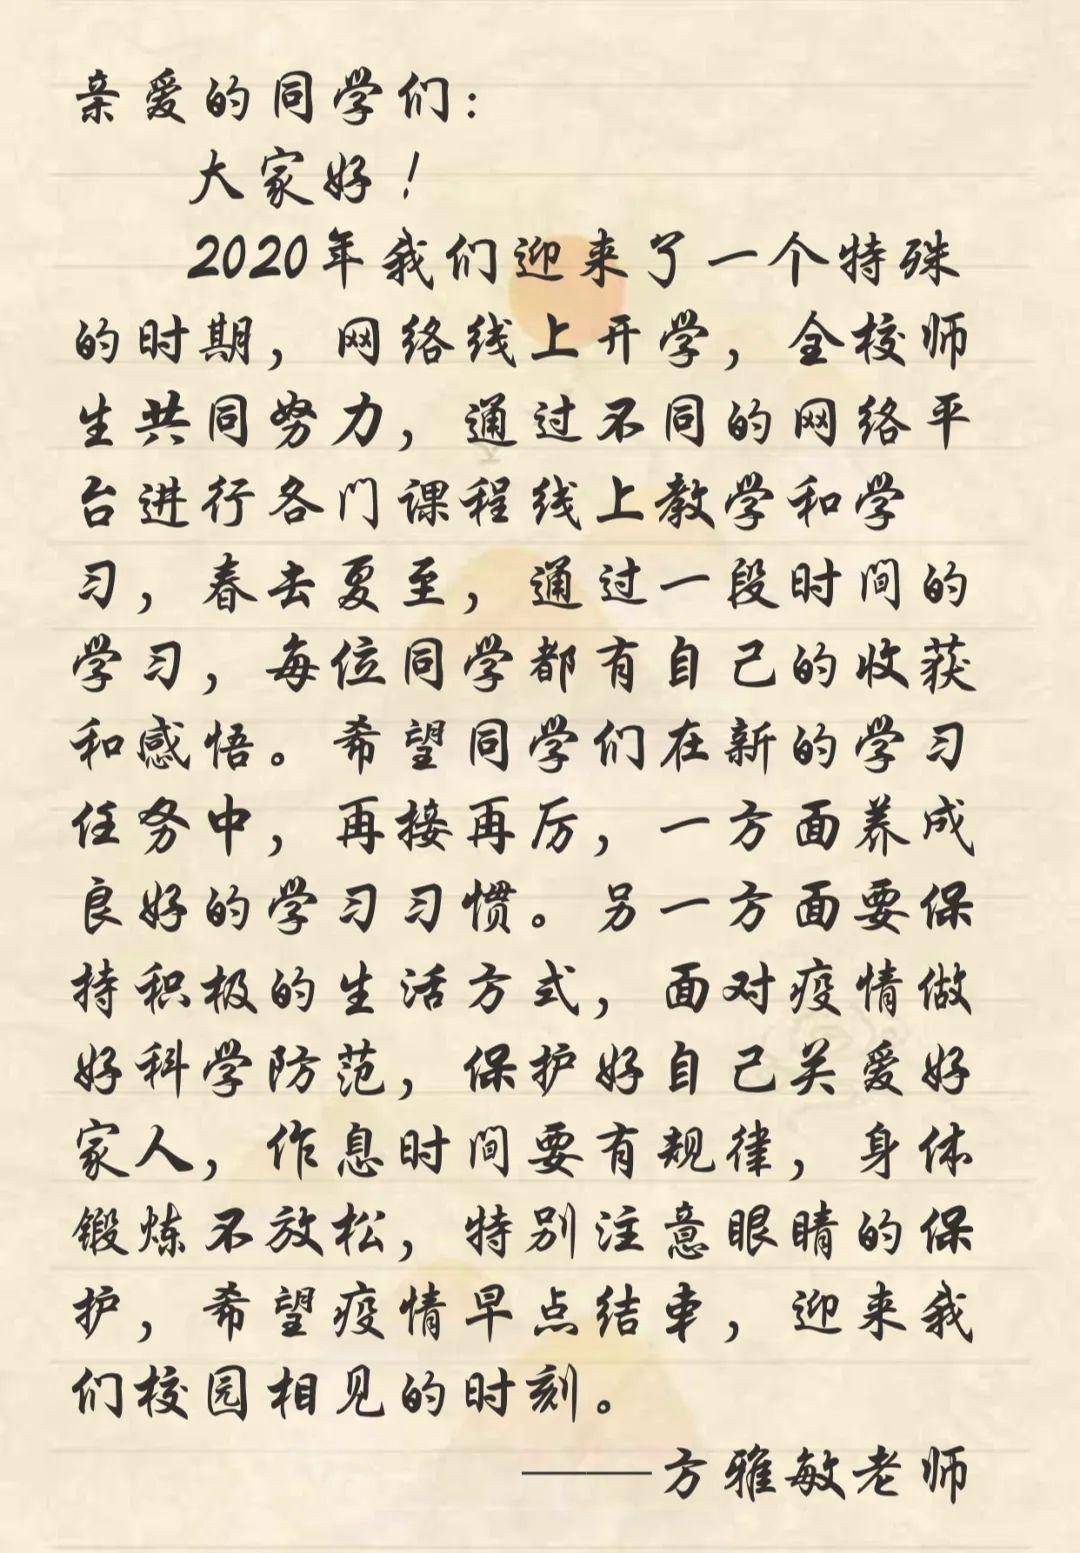 亲爱的同学们：
大家好！
2020年我们迎来了一个特殊
的时期，网络线上开学，全校师
生共同努力，通过不同的网络平
台进行各门课程线上教学和学
习，春去夏至，通过一段时间的
学习，每位同学都有自己的收获
和感悟。希望同学们在新的学习
任务中，再接再厉，一方面养成
良好的学习习惯。另一方面要保
持积极的生活方式，面对疫情做
好科学防范，保护好自己关爱好
家人，作息时间要有规律，身体
锻炼不放松，特别注意眼睛的保
护，希望疫情早点结束，迎来我
们校园相见的时刻。
——方雅敏老师